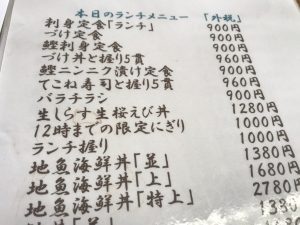 本日のランチメニュー 「外税」
刺身定食「ランチ」 900円
づけ定食 900円
鰹刺身定食 900円
づけ丼と握り5貫 960円
鰹ニンニク漬け定食 900円
てこね寿司と握り5貫 960円
バラチラシ 900円
生しらす生桜えび丼 1280円
12時までの限定にぎり 1000円
ランチ握り 1000円
地魚海鮮丼「並」 1380円
地魚海鮮丼「上」 1680円
地魚海鮮丼「特上」 2780円